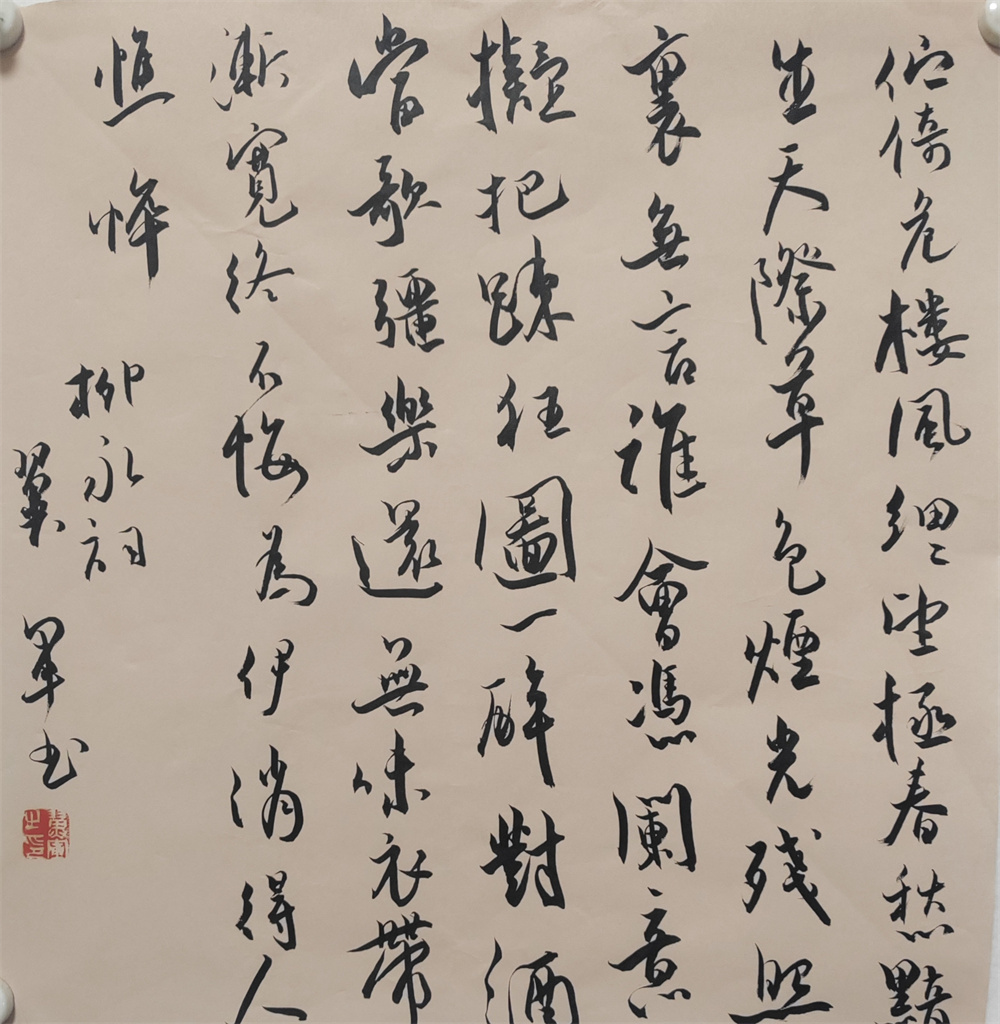 佇倚危楼風細〻望極春愁黯
生天際草色煙光殘照
裏無言誰會憑闌意
擬把踈狂圖一醉對酒
當歌彊樂還無味衣帶
漸寬終不悔為伊消得人
憔悴
柳永詞
軍书